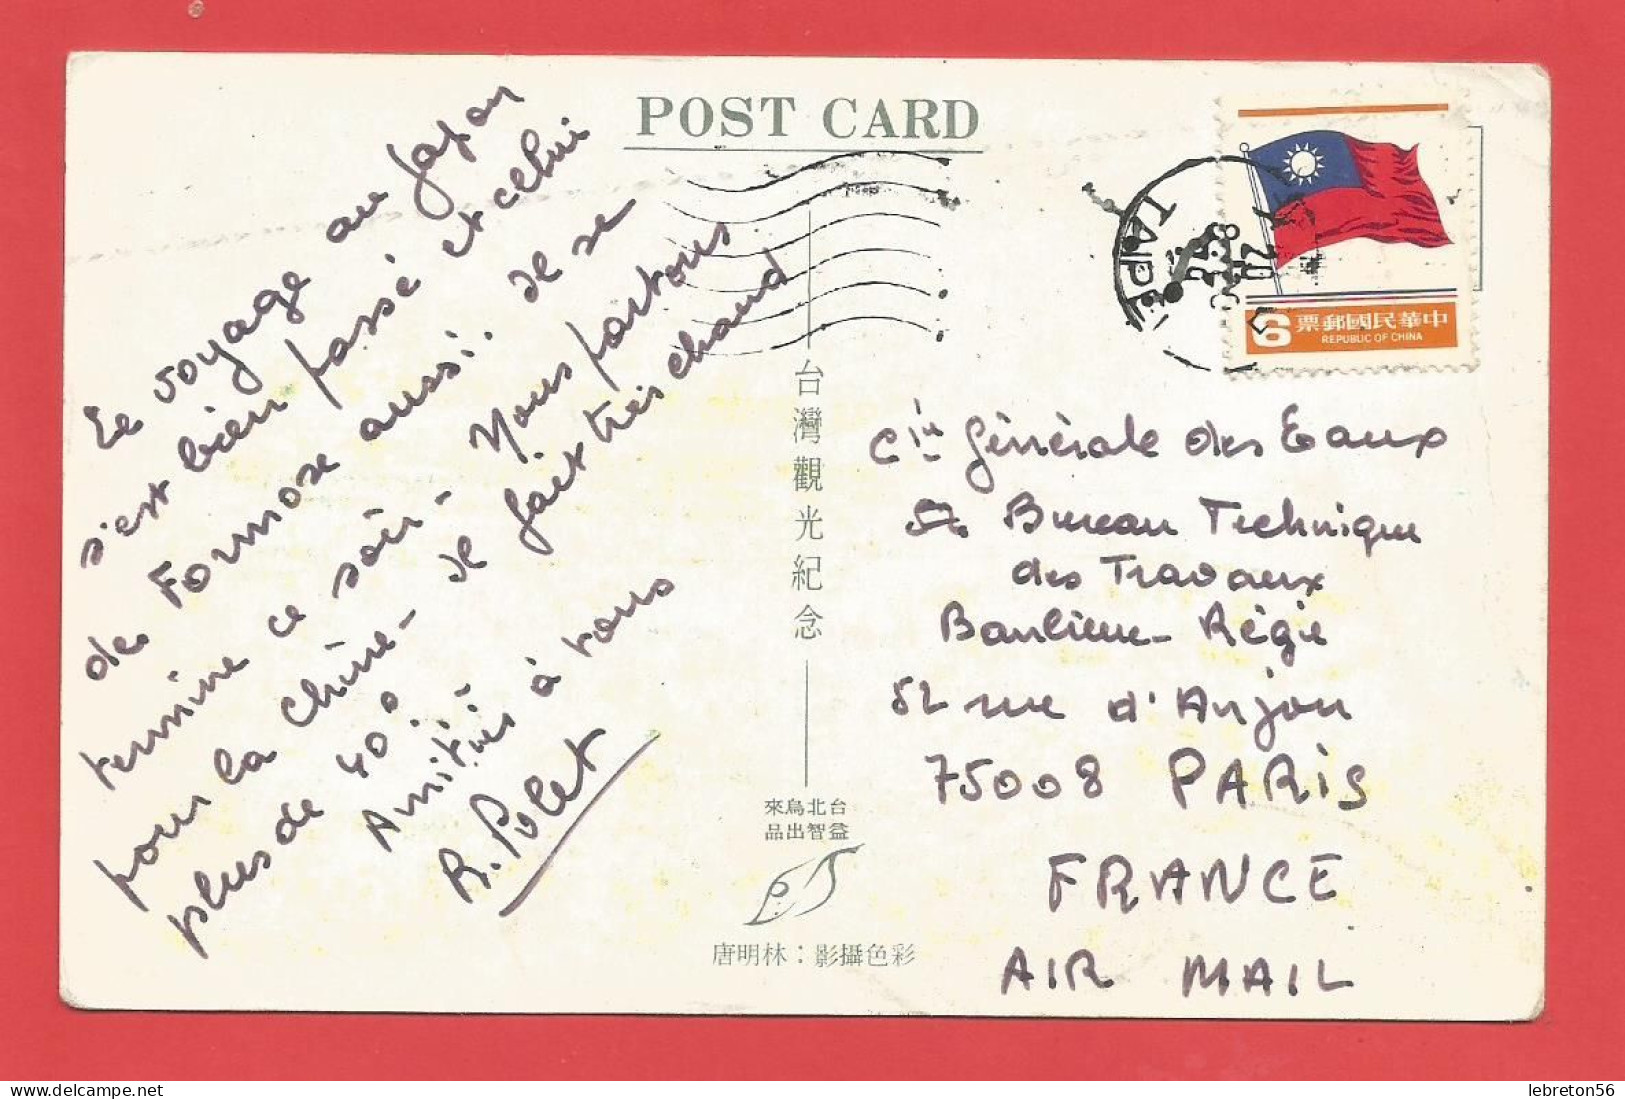 POST CARD
Le voyage au Japon
s'est bien passé et celui
de Formose aussi. Il se
termine ce soir - Nous partons
pour la Chine - Il fait très chaud
plus de 40°.
Amitiés à tous
R. Polet
台灣觀光紀念
來烏北台
品出智益
唐明林：影攝色彩
TAIPEI
票郵國民華中
6
REPUBLIC OF CHINA
Cie Générale des Eaux
Bureau Technique
des Travaux
Banlieue - Régie
52 rue d'Anjou
75008 PARIS
FRANCE
AIR MAIL
lebreton56